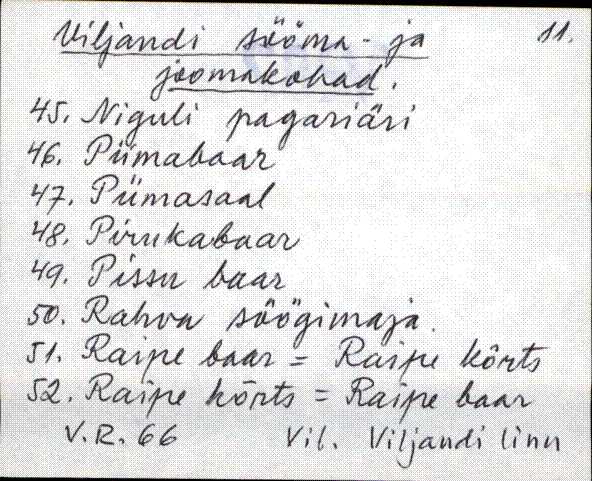 Viljandi sööma- ja 11.
joomakohad.
45. Niguli pagariäri
46. Piimabaar
47. Piimasaal
48. Pirukabaar
49. Pissu baar
50. Rahva söögimaja.
51. Raipe baar = Raipe kõrts
52. Raipe kõrts = Raipe baar
V.R. 66 Vil. Viljandi linn